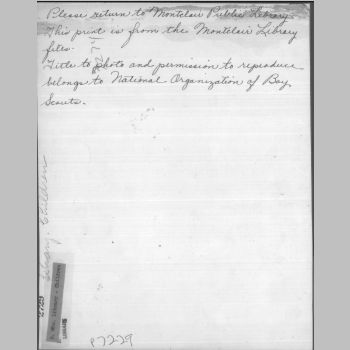 Please return to Montclair Public Library.
This print is from the Montclair Library
files.
Title to photo and permission to reproduce
belongs to National Organization of Boy
Scouts.
Library. Children
P7229